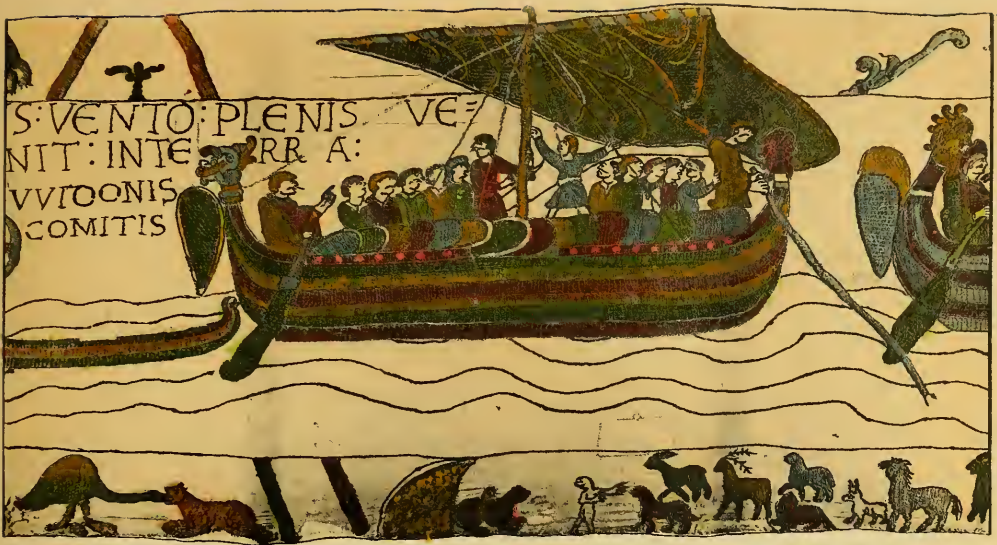 S: VENTO: PLENIS VE=
NIT: INTE RR A:
VVIDONIS
COMITIS